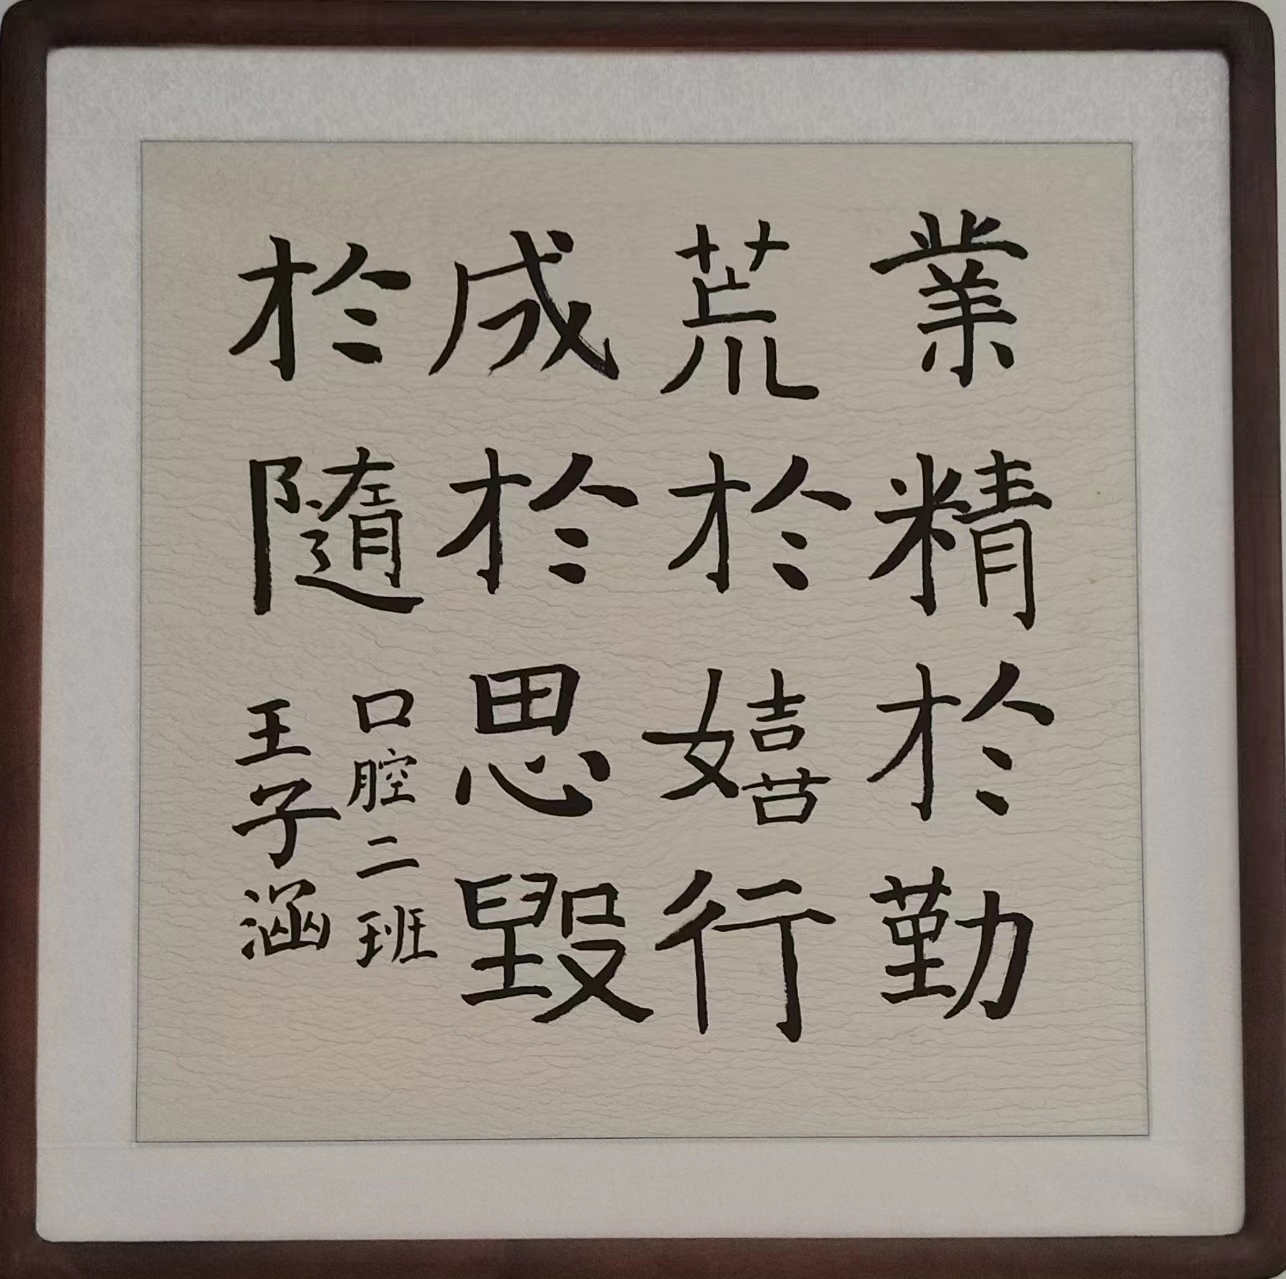 業精於勤
荒於嬉行
成於思毀
於隨
口腔二班
王子涵